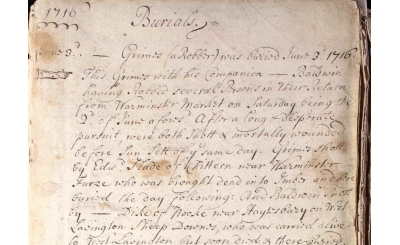 1716
Burials,
June 3d. — Grimes (a Robber) was buried June 3. 1716.
This Grimes with his Companion — Baldwin
having Robbed several Persons in their Return
from Warminster Market on Saturday being the
2d of June aforesd. After a long & desperate
pursuit, were both Shott & mortally wounded
before Sun Sett of ye same day. Grimes Shott
by Edwd. Slade of near Warminster
Furze who was brought dead into Imber and there
buried the day following: And Baldwin shott
by — of near Haytesbury on West
Lavington Sheep Downes, who was carried alive
to West Lavington but soon died & there buried